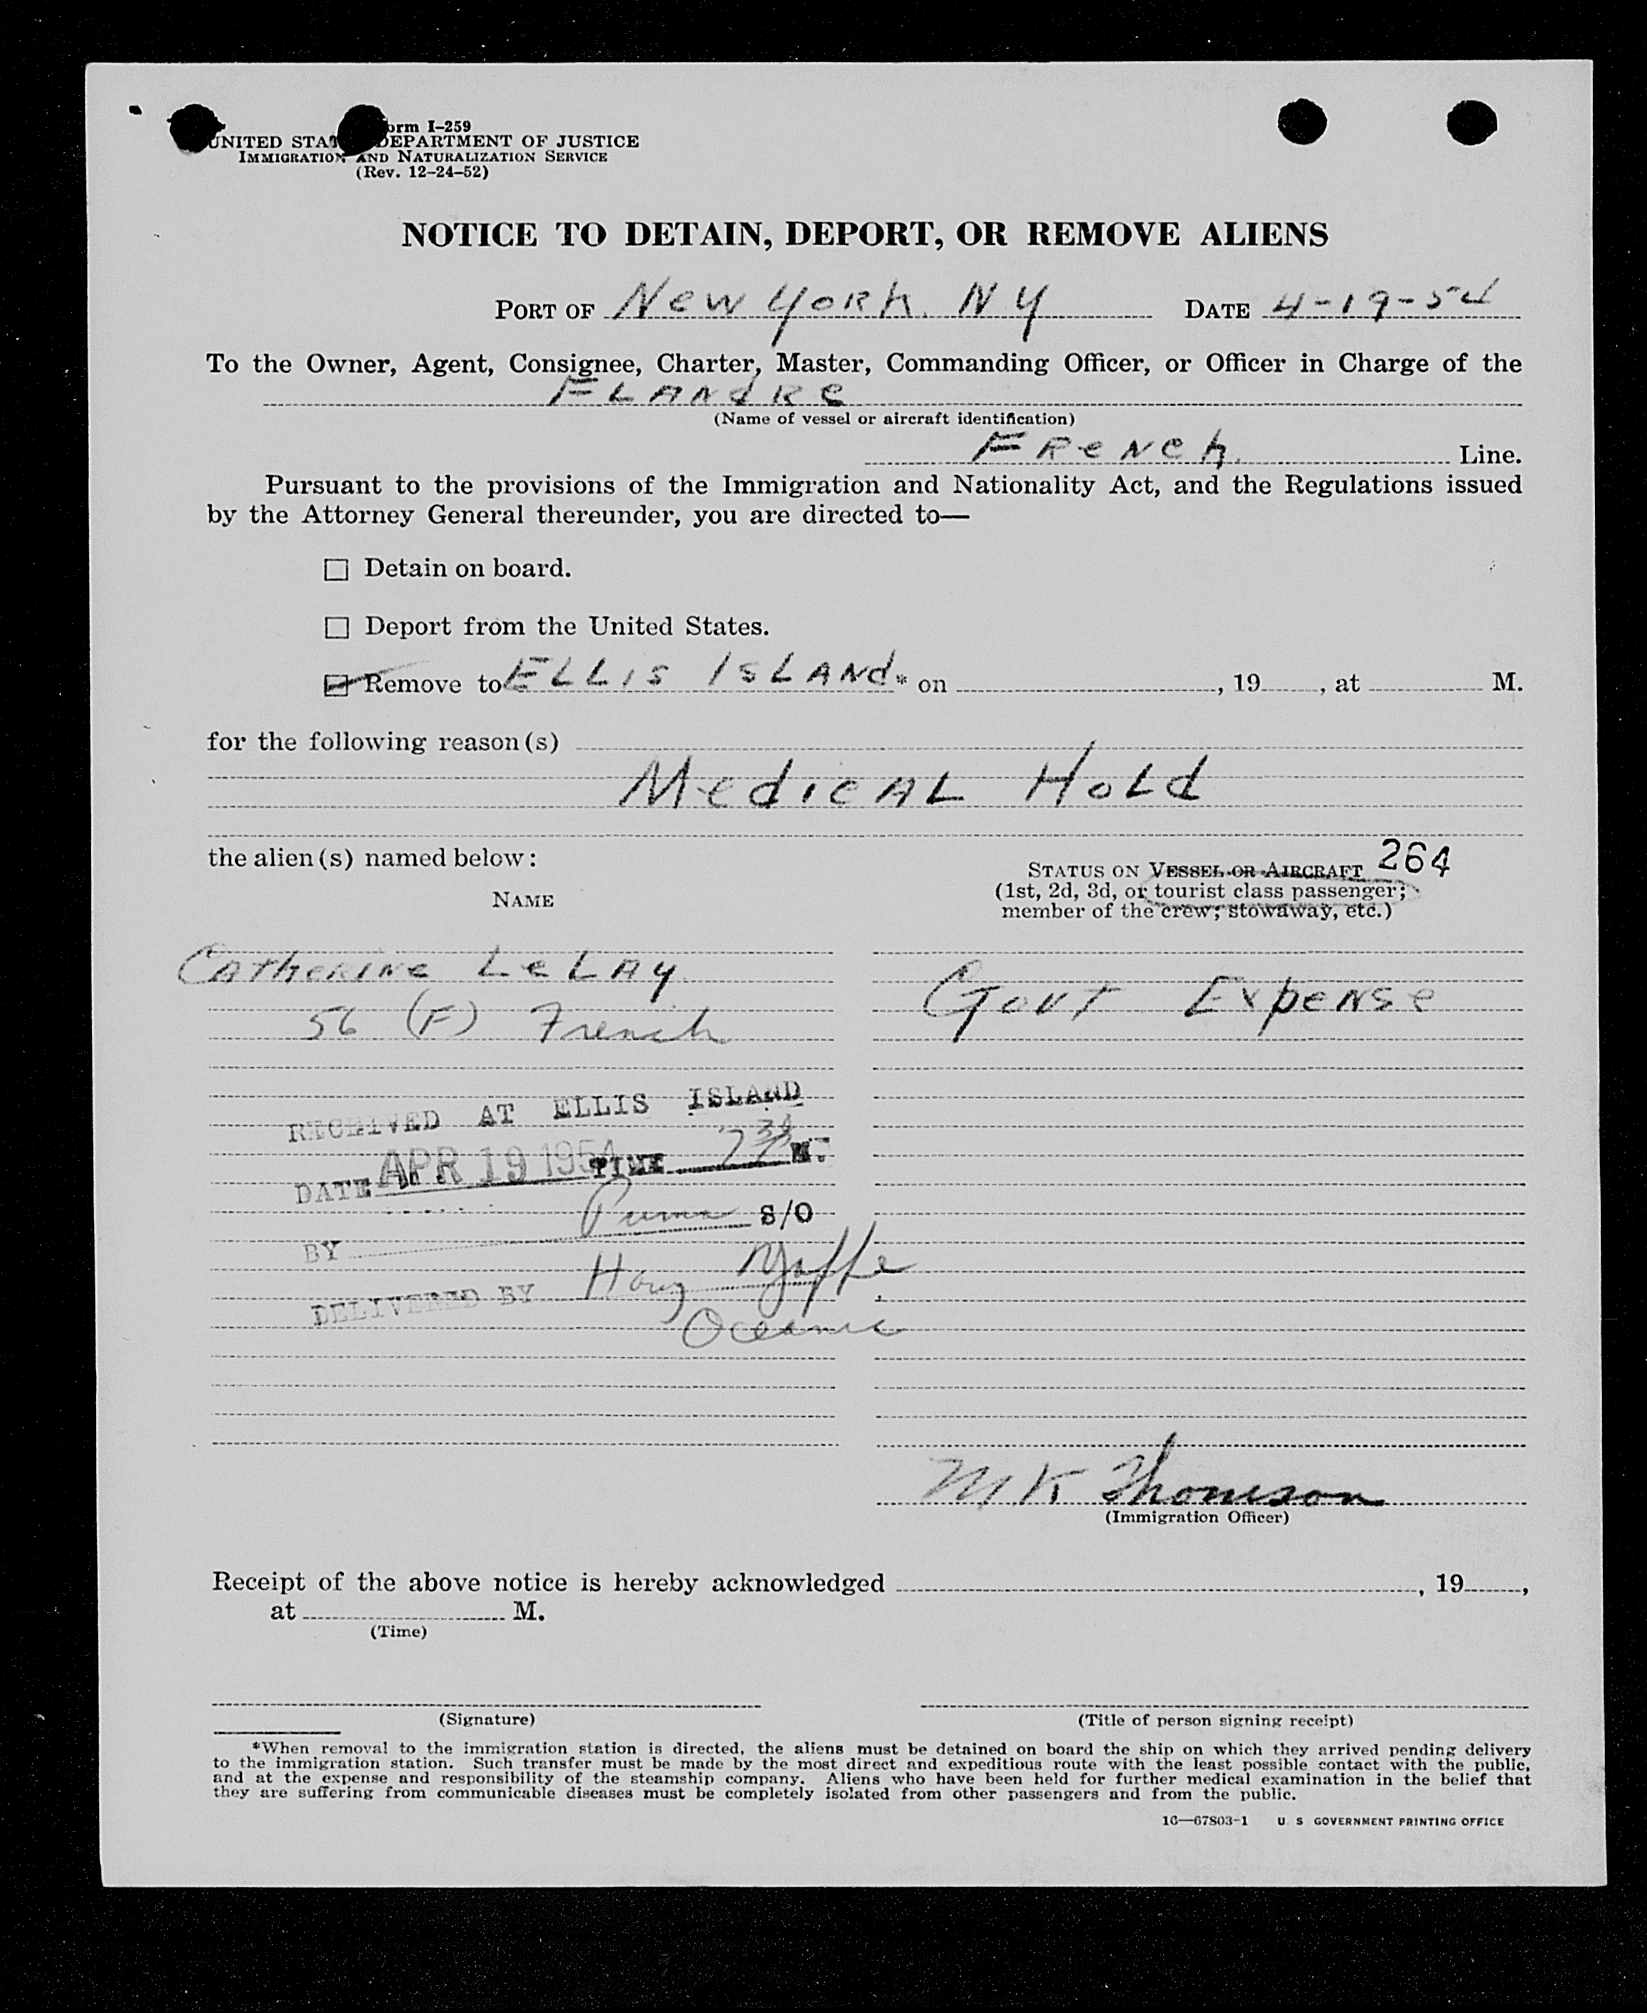 Form I-259
UNITED STATES DEPARTMENT OF JUSTICE
IMMIGRATION AND NATURALIZATION SERVICE
(Rev. 12-24-52)
NOTICE TO DETAIN, DEPORT, OR REMOVE ALIENS
PORT OF New York. NY DATE 4-19-54
To the Owner, Agent, Consignee, Charter, Master, Commanding Officer, or Officer in Charge of the
FLANdRe
(Name of vessel or aircraft identification)
FReNch Line.
Pursuant to the provisions of the Immigration and Nationality Act, and the Regulations issued
by the Attorney General thereunder, you are directed to—
☐ Detain on board.
☐ Deport from the United States.
☑ Remove to ELLIS ISLANd* on , 19 , at M.
for the following reason(s)
MedicAL HoLd
the alien(s) named below:
264
STATUS ON VESSEL OR AIRCRAFT
(1st, 2d, 3d, or tourist class passenger;
member of the crew; stowaway, etc.)
NAME
CATHERINE LeLAy
56 (F) French
Govt Expense
RECEIVED AT ELLIS ISLAND
DATE APR 19 1954 TIME 7 M.
BY S/O
DELIVERED BY Yaffe
Oceanic
MK Thomson
(Immigration Officer)
Receipt of the above notice is hereby acknowledged , 19 ,
at M.
(Time)
(Signature) (Title of person signing receipt)
*When removal to the immigration station is directed, the aliens must be detained on board the ship on which they arrived pending delivery
to the immigration station. Such transfer must be made by the most direct and expeditious route with the least possible contact with the public,
and at the expense and responsibility of the steamship company. Aliens who have been held for further medical examination in the belief that
they are suffering from communicable diseases must be completely isolated from other passengers and from the public.
16—67803-1 U S GOVERNMENT PRINTING OFFICE